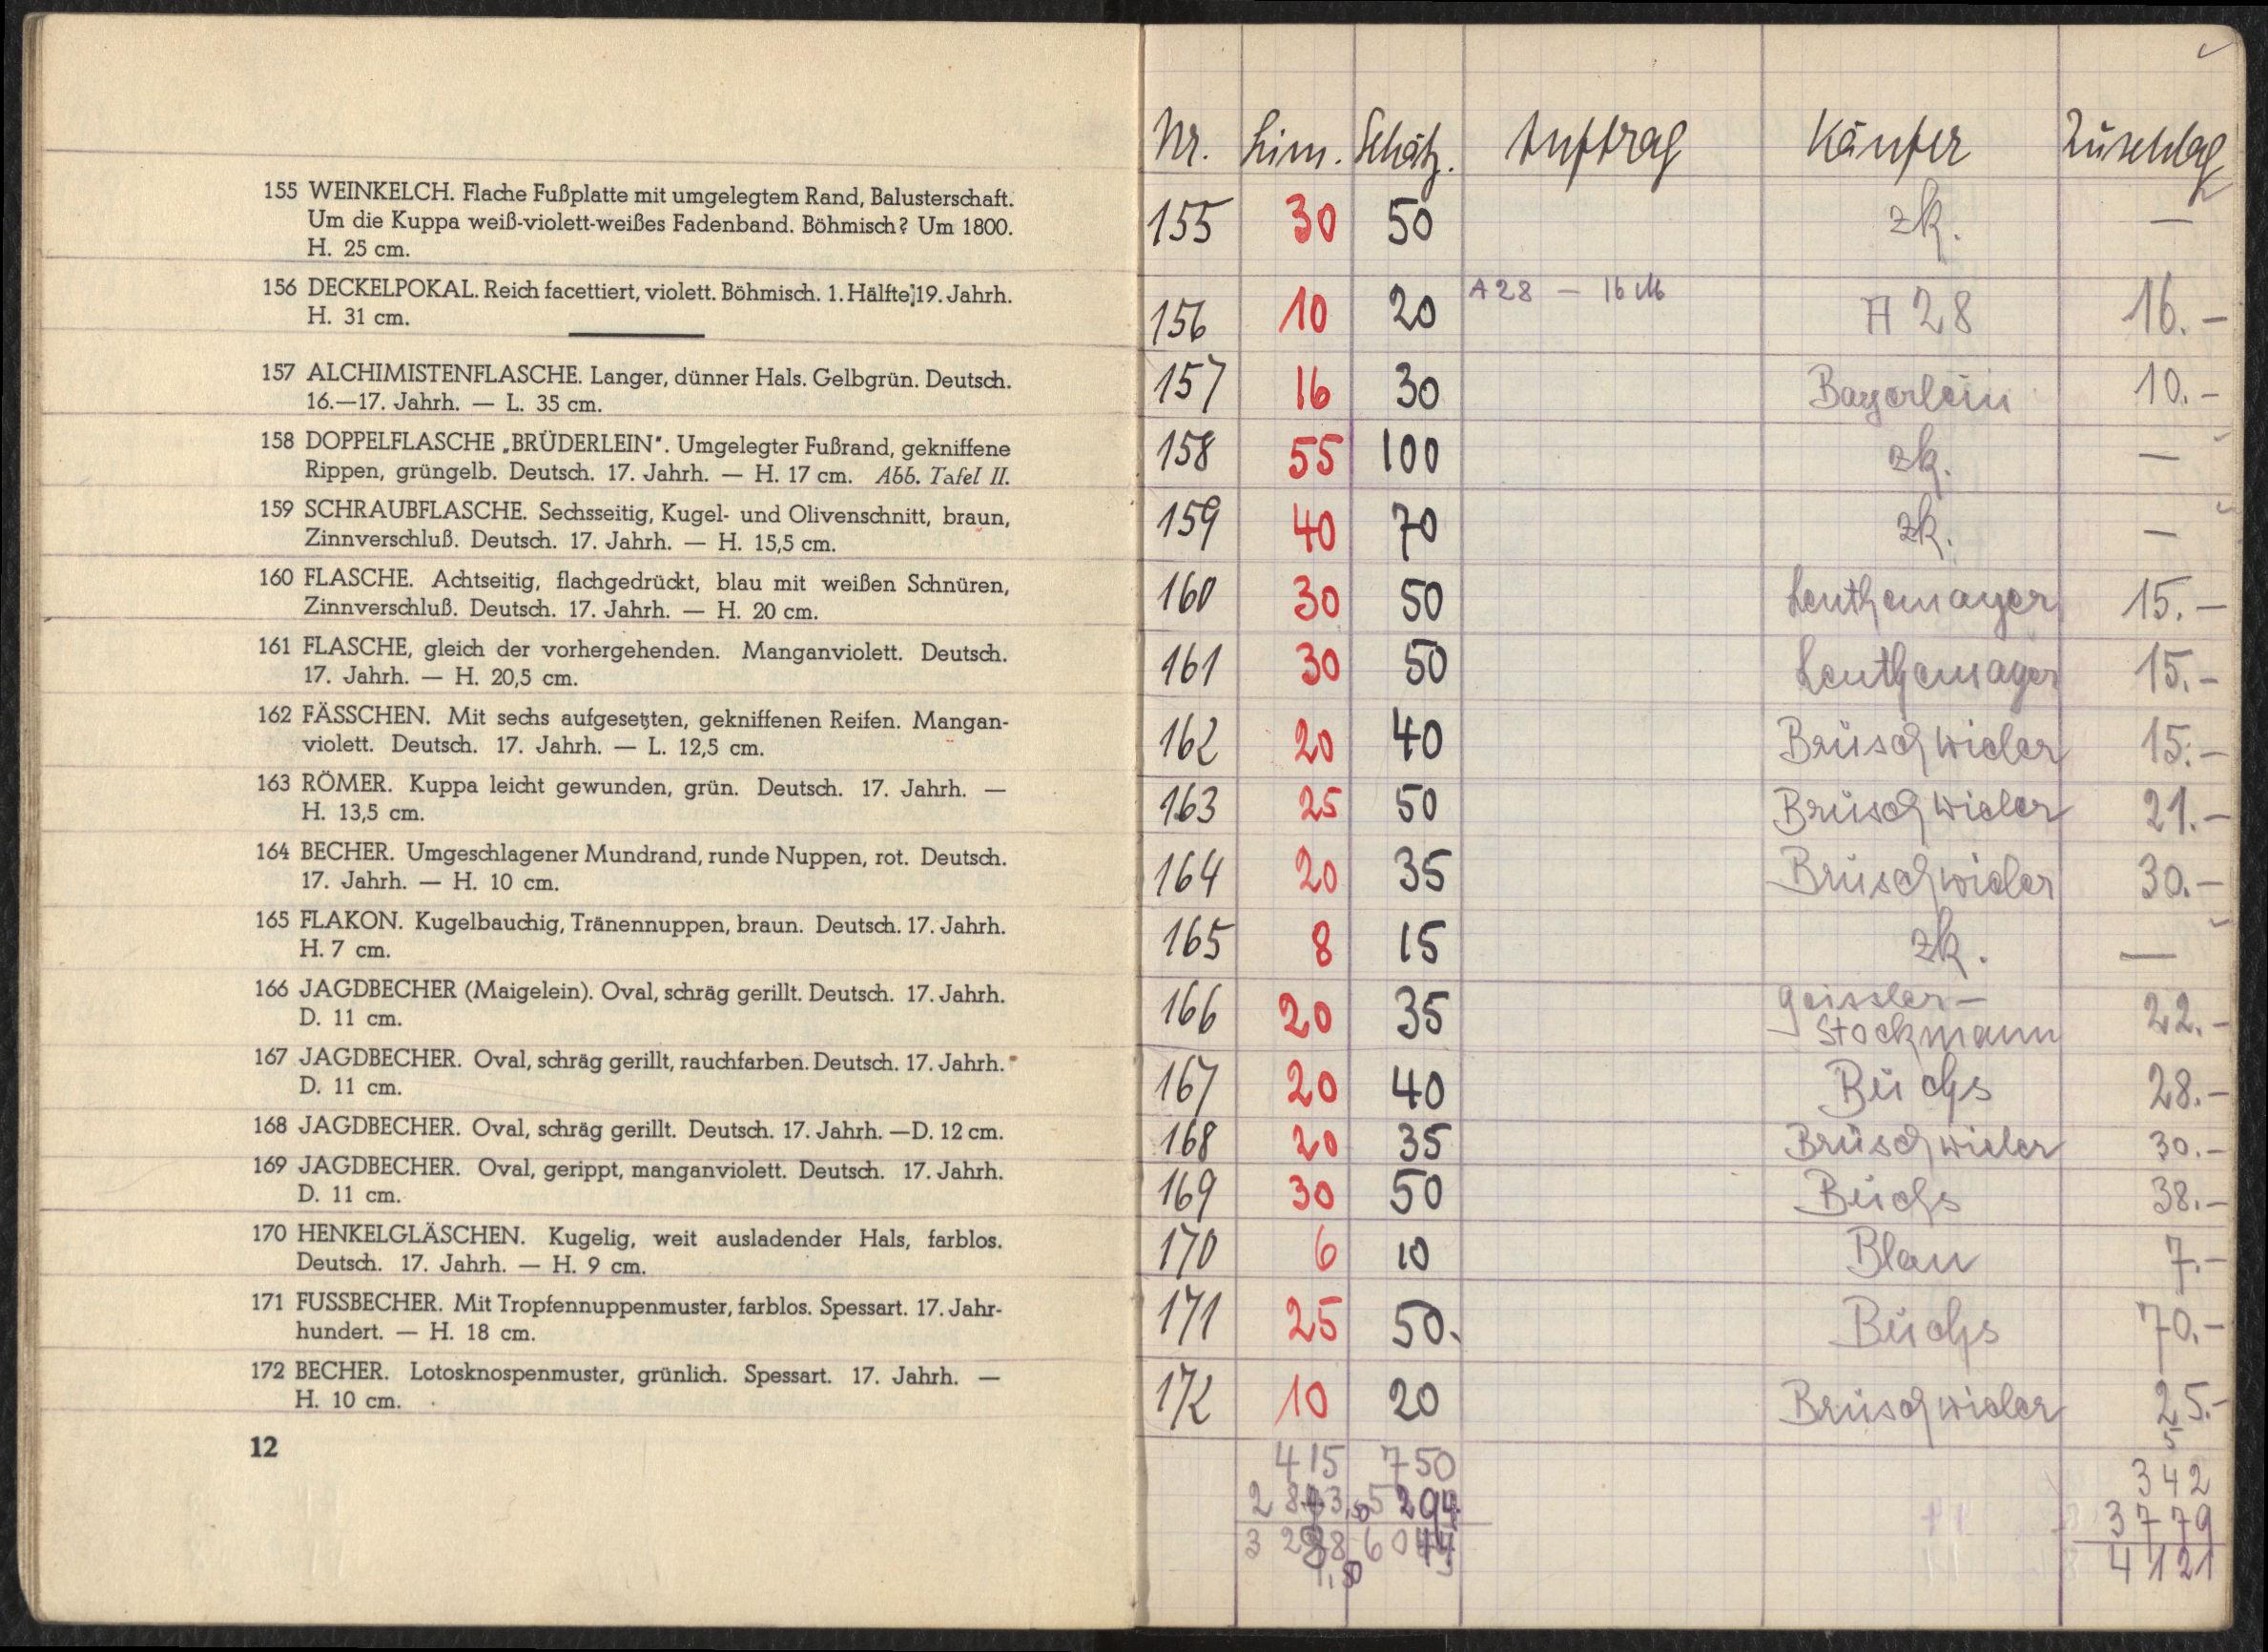 155 WEINKELCH. Flache Fußplatte mit umgelegtem Rand, Balusterschaft.
Um die Kuppa weiß-violett-weißes Fadenband. Böhmisch? Um 1800.
H. 25 cm.
156 DECKELPOKAL. Reich facettiert, violett. Böhmisch. 1. Hälfte 19. Jahrh.
H. 31 cm.
157 ALCHIMISTENFLASCHE. Langer, dünner Hals. Gelbgrün. Deutsch.
16.—17. Jahrh. — L. 35 cm.
158 DOPPELFLASCHE „BRÜDERLEIN". Umgelegter Fußrand, gekniffene
Rippen, grüngelb. Deutsch. 17. Jahrh. — H. 17 cm. Abb. Tafel II.
159 SCHRAUBFLASCHE. Sechsseitig, Kugel- und Olivenschnitt, braun,
Zinnverschluß. Deutsch. 17. Jahrh. — H. 15,5 cm.
160 FLASCHE. Achtseitig, flachgedrückt, blau mit weißen Schnüren,
Zinnverschluß. Deutsch. 17. Jahrh. — H. 20 cm.
161 FLASCHE, gleich der vorhergehenden. Manganviolett. Deutsch.
17. Jahrh. — H. 20,5 cm.
162 FÄSSCHEN. Mit sechs aufgesetzten, gekniffenen Reifen. Mangan-
violett. Deutsch. 17. Jahrh. — L. 12,5 cm.
163 RÖMER. Kuppa leicht gewunden, grün. Deutsch. 17. Jahrh. —
H. 13,5 cm.
164 BECHER. Umgeschlagener Mundrand, runde Nuppen, rot. Deutsch.
17. Jahrh. — H. 10 cm.
165 FLAKON. Kugelbauchig, Tränennuppen, braun. Deutsch. 17. Jahrh.
H. 7 cm.
166 JAGDBECHER (Maigelein). Oval, schräg gerillt. Deutsch. 17. Jahrh.
D. 11 cm.
167 JAGDBECHER. Oval, schräg gerillt, rauchfarben. Deutsch. 17. Jahrh.
D. 11 cm.
168 JAGDBECHER. Oval, schräg gerillt. Deutsch. 17. Jahrh. —D. 12 cm.
169 JAGDBECHER. Oval, gerippt, manganviolett. Deutsch. 17. Jahrh.
D. 11 cm.
170 HENKELGLÄSCHEN. Kugelig, weit ausladender Hals, farblos.
Deutsch. 17. Jahrh. — H. 9 cm.
171 FUSSBECHER. Mit Tropfennuppenmuster, farblos. Spessart. 17. Jahr-
hundert. — H. 18 cm.
172 BECHER. Lotosknospenmuster, grünlich. Spessart. 17. Jahrh. —
H. 10 cm.
12
Nr. Lim. Schätz. Auftrag Käufer Zuschlag
155 30 50 zk. —
156 10 20 A 28 — 16 M A 28 16.—
157 16 30 Bayerlein 10.—
158 55 100 zk. —
159 40 70 zk. —
160 30 50 Leuthemayer 15.—
161 30 50 Leuthemayer 15.—
162 20 40 Brüschwieler 15.—
163 25 50 Brüschwieler 21.—
164 20 35 Brüschwieler 30.—
165 8 15 zk. —
166 20 35 Geissler-
Stockmann 22.—
167 20 40 Büchs 28.—
168 20 35 Brüschwieler 30.—
169 30 50 Büchs 38.—
170 6 10 Blau 7.—
171 25 50. Büchs 70.—
172 10 20 Brüschwieler 25.—
5
415 750 342
5294 3779
4121